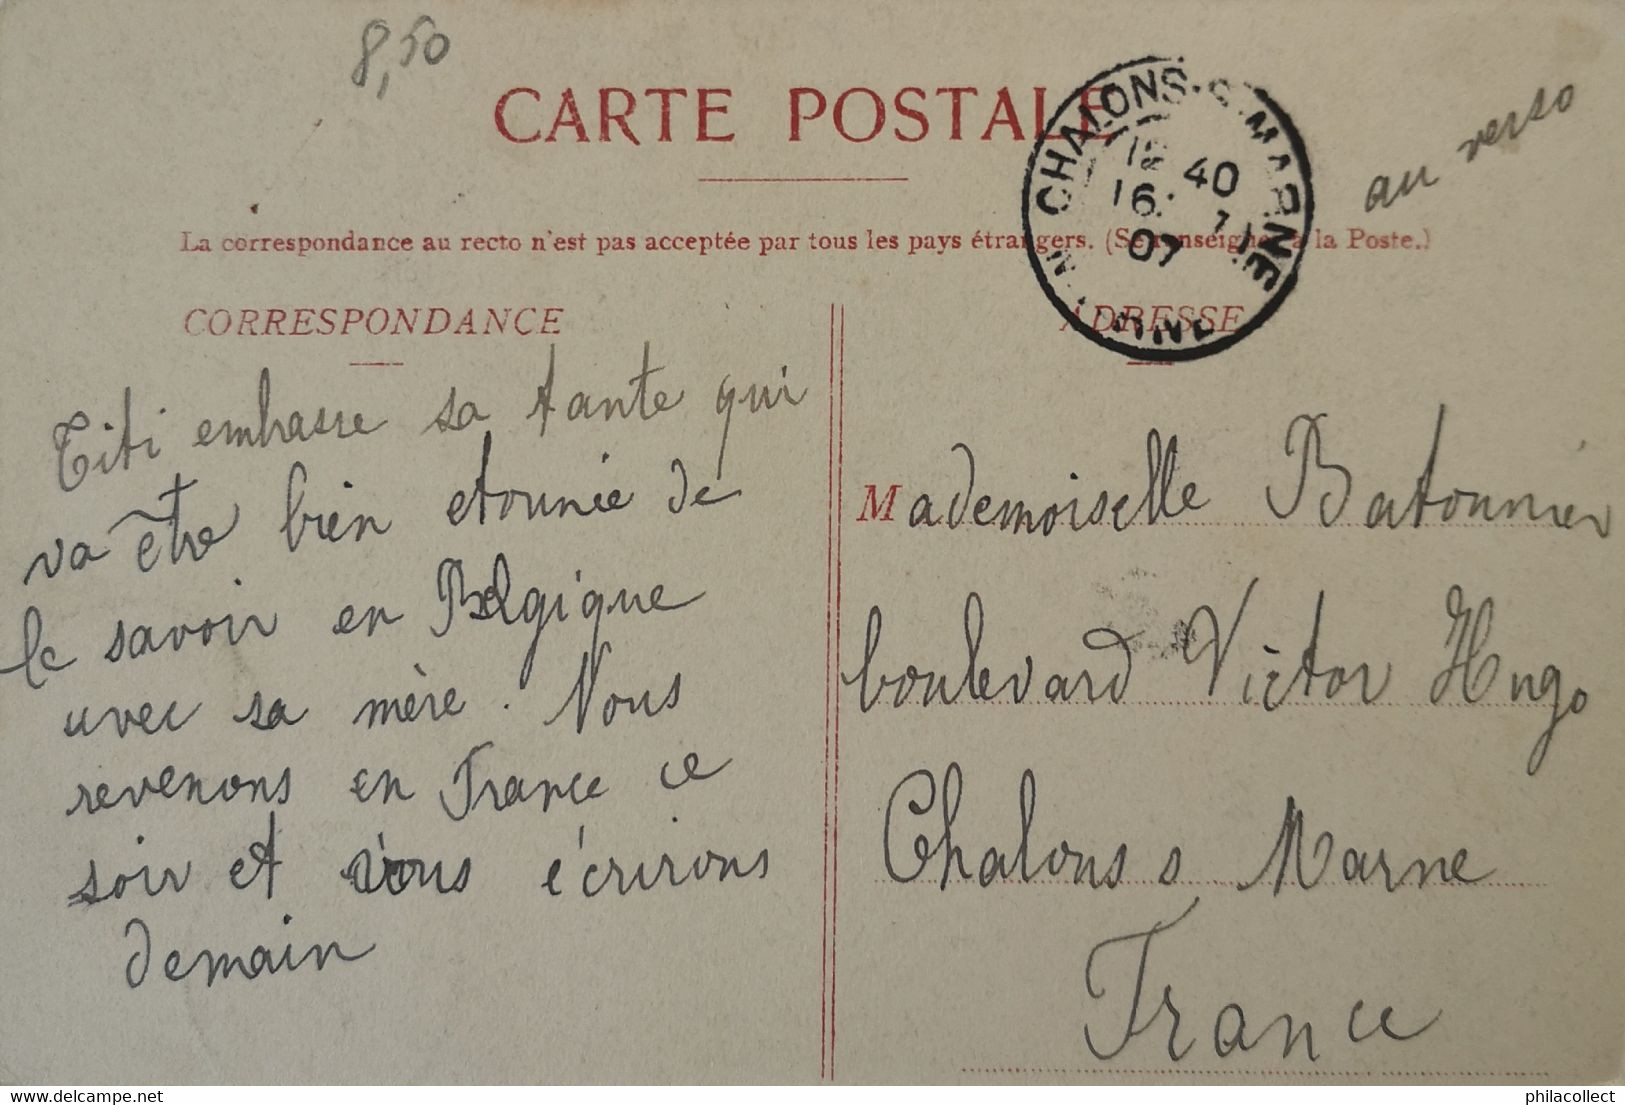 8,50
CARTE POSTALE
au verso
CHALONS-S-MARNE
40
16 7
07
MARNE
La correspondance au recto n'est pas acceptée par tous les pays étrangers. (Se renseigner à la Poste.)
CORRESPONDANCE
Titi embrasse sa tante qui
va être bien etounée de
le savoir en Belgique
avec sa mère. Nous
revenons en France ce
soir et vous écrirons
demain
ADRESSE
Mademoiselle Batonnier
boulevard Victor Hugo
Chalons s Marne
France
www.delcampe.net
philacollect